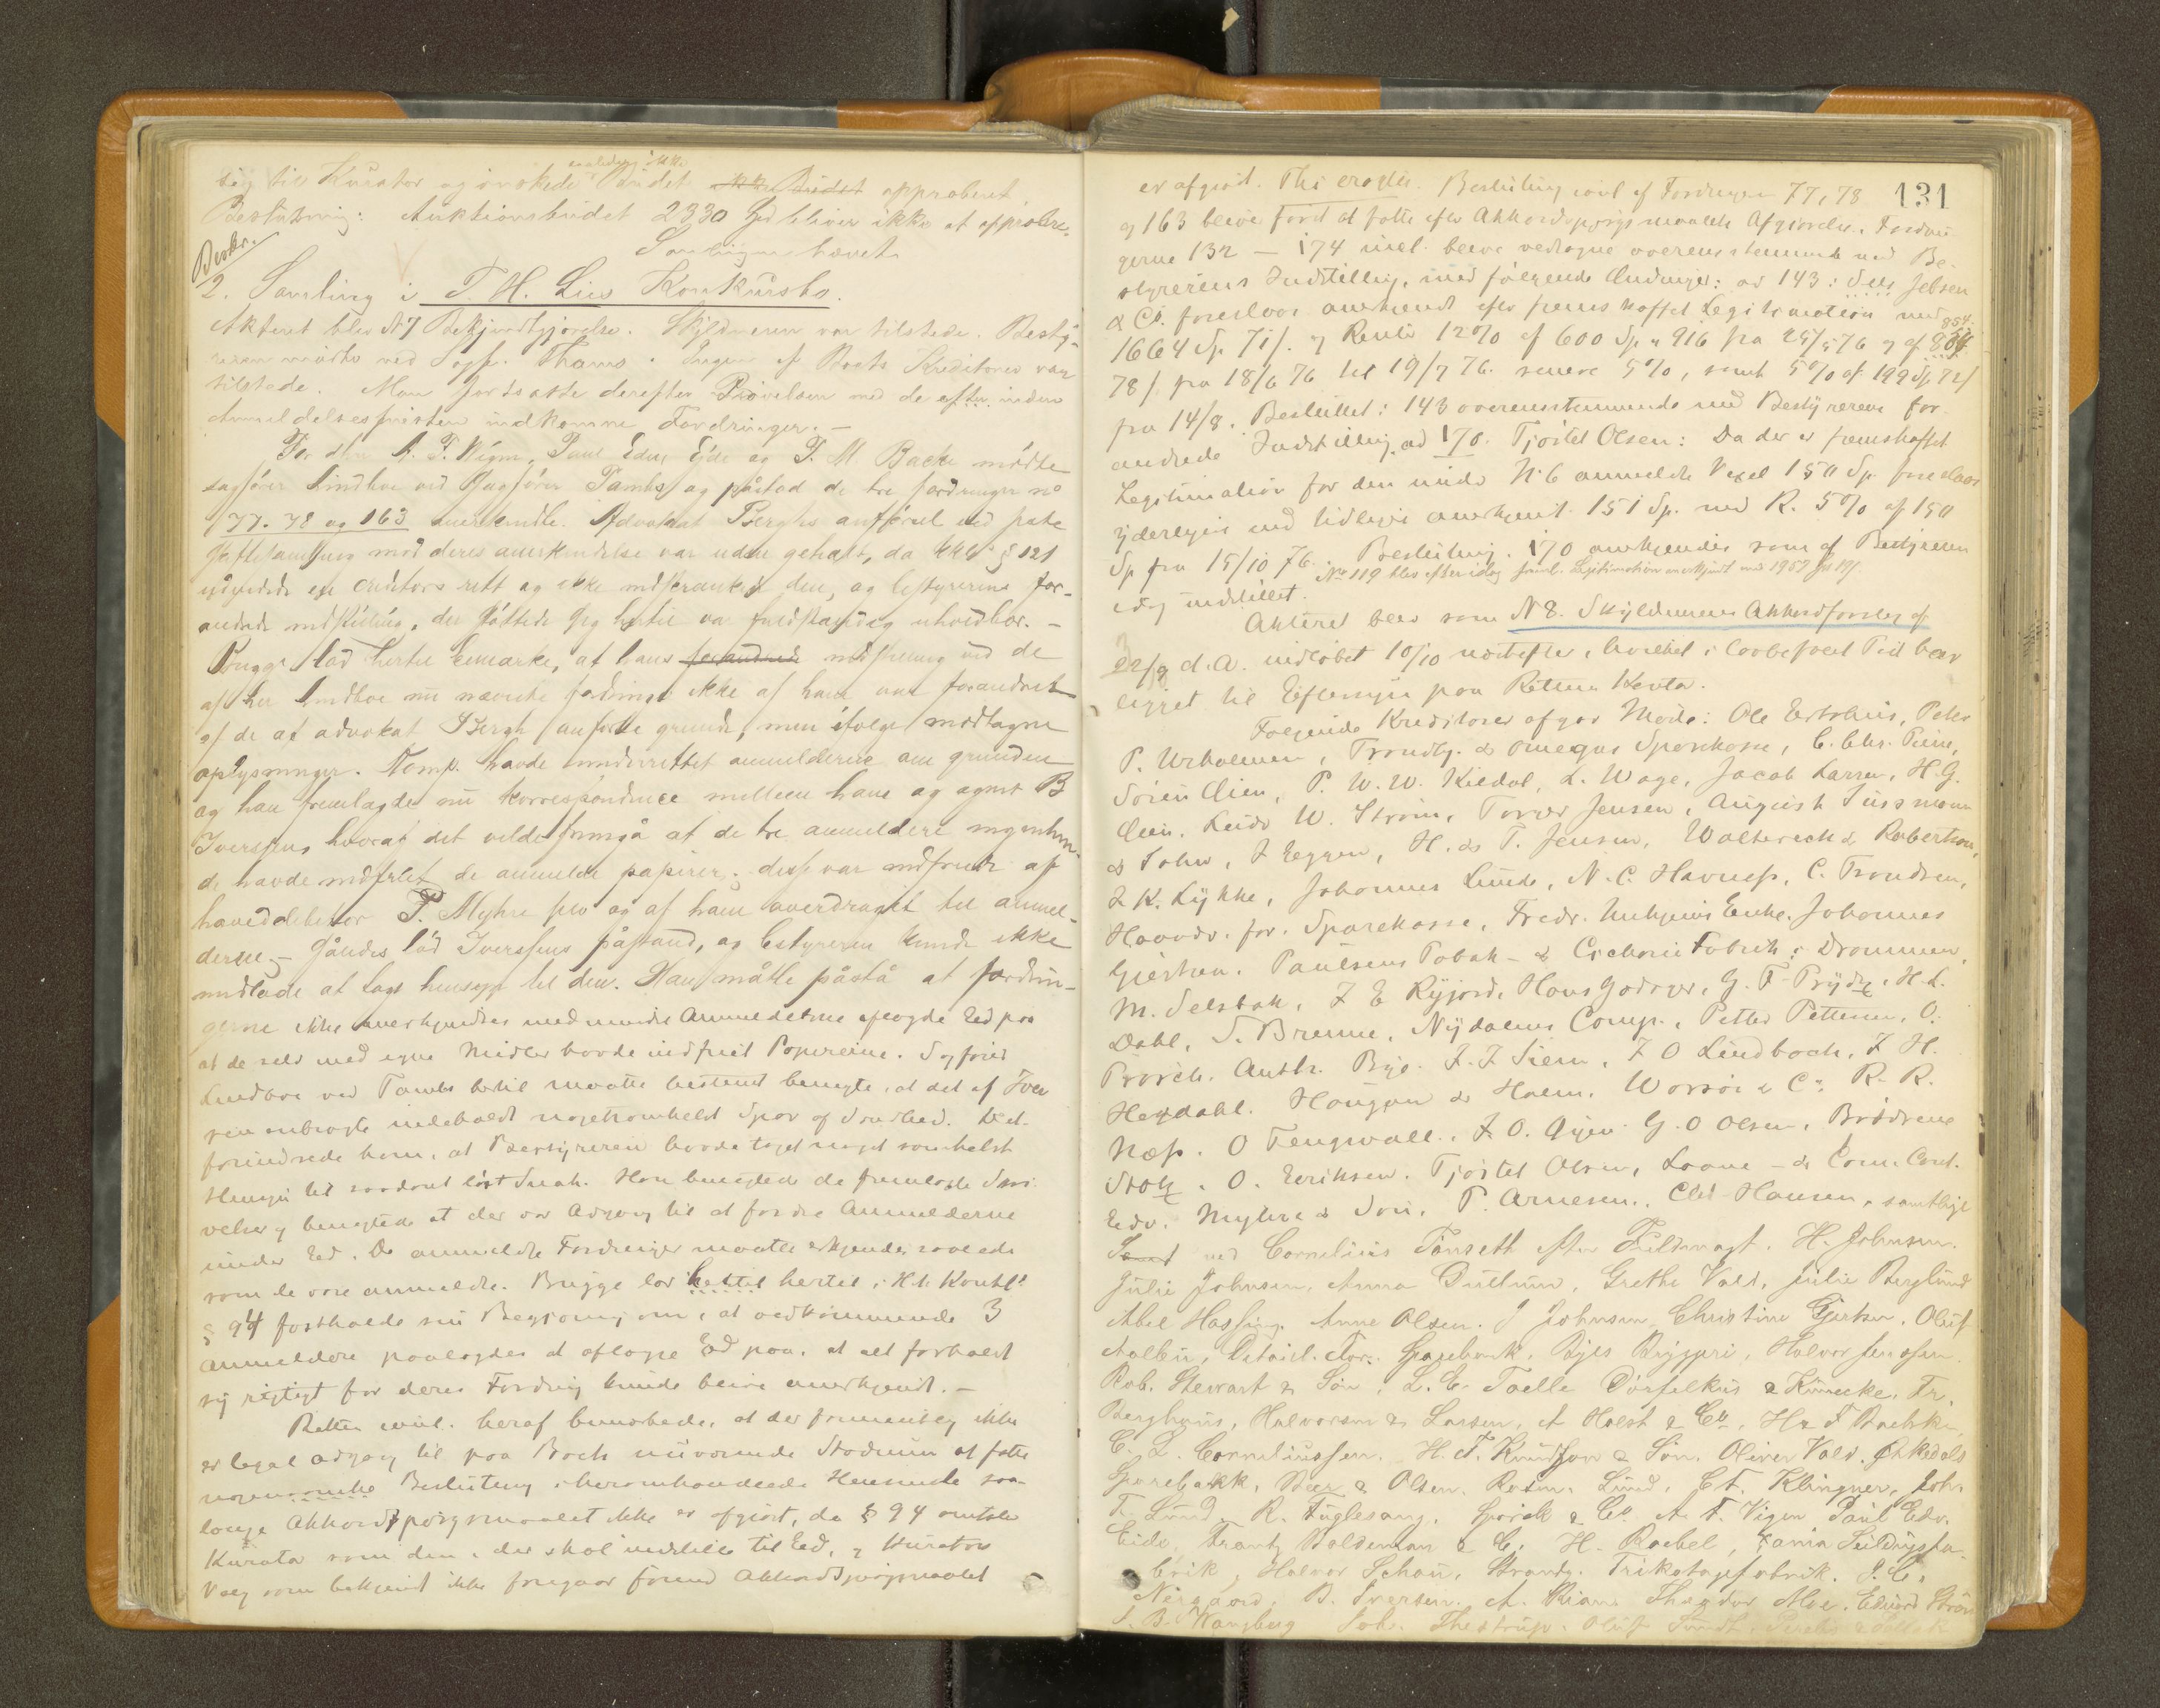 sig til Kurator og ønskede Budet ikke approberet.
Beslutning: Auktionsbudet 2330 Spd bliver ikke at approbere.
Samlingen hævet
Beskr.
2. Samling i T. H. Lies Konkursbo.
Akteret blev N 7 Bekjendtgjørelse. Skyldneren var tilstede. Besty-
reren mødte ved Sagf. Thams. Ingen af Boets Kreditorer var
tilstede. Man fortsatte derefter Prøvelsen med de efter inden
Anmeldelsesfristen indkomne Fordringer. —
For A. T. Wigen, Paul Edv. Eide og T. M. Backe mødte
sagfører Lindboe ved Sagfører Tambs og påstod de tre fordringer no
77. 78 og 163 anerkendte. Advokat Berghs anførsel ved
mod deres anerkendelse var uden gehalt, da kkl. § 121
en creditors rett og ikke indskrænked den, og bestyrerens for-
andrede indstilling, der støttede sig hertil var fuldstændig uholdbar. —
Brugge lod hertil bemærke, at hans forandrede indstilling ved de
af Hr Lindboe nu nævnte fordringer ikke af ham var forandret
af de af advokat Bergh anførte grunde, men ifølge modtagne
oplysninger. Komp. havde underrettet anmelderne om grunden
og han fremlagde nu korrespondence mellem ham og agent B
Iversens hvoraf det vilde fremgå at de tre anmeldere ingenlun-
de havde indfriet de anmeldte papirer; disse var indfriede af
hoveddebitor P. Myhre selv og af ham overdraget til anmel-
derne. — Således lød Iversens påstand, og bestyreren kunde ikke
undlade at tage hensyn til den. Han måtte påstå at fordrin-
gerne ikke anerkjendtes med mindre Anmelderne aflagde Eed paa
at de selv med egne Midler havde indfriet Papirerne. Sagfører
Lindboe ved Tambs hertil maatte bestemt benegte, at det af Iver
sen anbragte indeholdt nogetsomhelst Spor af Sandhed. Det
forundrede ham, at Bestyreren havde taget noget somhelst
Hensyn til saadant løst Snak. Han benegtede de fremlagte Skri-
velser og benegtede at der var Adgang til at fordre Anmelderne
under Eed. De anmeldte Fordringer maatte erkjendes saaledes
som de vare anmeldte. Brugge lod hertil i H. t. Konkl.
§ 94 fastholde sin Begjæring om, at vedkommende 3
Anmeldere paalagdes at aflægge Ed paa, at alt forholdt
sig rigtigt før deres Fordring kunde blive anerkjendt. —
Retten vil heraf bemærkede, at der formentlig ikke
er legal adgang til paa Boets nuværende Stadium at fatte
nogensomhelst Beslutning i heromhandlede Henseende saa-
længe Akkordspørgsmaalet ikke er afgjort, da § 94 omtaler
Kurator som den, der skal indstille til Eed, og Kurators
Valg som bekjendt ikke foregaar førend Akkordspørgsmaalet
131
er afgjort. Thi eragtes. Beslutning vil af Fordringen 77, 78
og 163 bliver først at fatte efter Akkordspørgsmaalets Afgjørelse. Fordrin
gerne 132 — 174 incl. bleve vedtagne overensstemmende med Be-
styrerens Indstilling, med følgende Ændringer: ad 143: Jebsen
& Co. foresloges anerkjendt efter fremskaffet Legitimation med
1664 Sp 71/. og Rente 12% af 600 Sp og 916 fra 24/5 76 og af 854
78/ fra 18/6 76 til 19/7 76. senere 5%, samt 5% af 199 Sp 72/
fra 14/8. Besluttet: 143 overensstemmende med Bestyrerens for-
andrede Indstilling. ad 170. Tjostel Olsen: Da der er fremskaffet
Legitimation for den under N 6 anmeldte Vexel 150 Sp. foreslaaes
yderligere end tidligere anerkjendt 151 Sp. med R. 5% af 150
Sp fra 15/10 76. Beslutning. 170 anerkjendes som af Bestyreren
No 119 blev efter idag freml. Legitimation anerkjendt med 1952 Sp 19/.
idag indstillet.
Akteret blev som N 8. Skyldnerens Akkordforslag af
22/9 d. A. indløbet 10/10 næstefter, hvilket i lovbefalet Tid har
ligget til Eftersyn paa Rettens Kontor.
Følgende Kreditorer afgav Møde: Ole Ertshus, Peter
P. Urholmen, Trondhj. & omegns Sparekasse, C. Chr. Piene,
Søren Oien, P. W. W. Kildal, L. Wage, Jacob Larsen, H. G.
Oien. Ludv W. Strøm, Torvær Jensen, August Sussmann
& Sohn, J Eggen, H. & T. Jensen, Walterech & Robertson,
J K. Lykke, Johannes Lunde, N. C. Havnep, C. Trondsen,
Haavds. for. Sparekasse, Fredr. Enke. Johannes
Gjertsen. Paulsens Tobak- & Cichorie Fabrik i Drammen,
M. Selsbak, J E Ryjord, Hans Godager, G. F. Prydz, H. L.
Dahl, S. Brenne, Nydalens Comp., Petter Pettersen, O.
Prorch. Anth. Bye. J. J Siem, J O Lindbach, J H.
Heydahl. Haugan & Holm. Worsøe & Co. R. R.
Næss. O Tengwall. J. O. Gjen. G. O Olsen, Brødrene
Stok. O. Eriksen. Tjostel Olsen, Laane- & Com. Cont.
Edv. Myhre & Søn. P. Arnesen. Chr. Hansen, samtlige
ved Cornelius Tanseth efter Fuldmagt. H. Johnsen.
Julie Johnsen, Anna Gullum, Grethe Vald, Julie Berglund
Abel Hassing. Anne Olsen. J Johnsen, Christine Gjertsen. Oluf
Aalbu, Sparebank, Byes Bryggeri, Halvor Jenssen.
Rob. Stewart & Søn, L. C. Taelle Dörfelkus & Künecke, Fr.
Berghaus, Halvorsen & Larsen, A Holst & Co, H & F Bachke
C. L. Corneliussen. H. F. Knudson & Søn. Oliver Vald. Orkedals
Sparebank, Beer & Olsen. Rasm. Lund. C F. Klingner, Joh.
F. Lund, R. Fuglesang. Gorick & Co. A. T. Vigen Paul Edv.
Eide, Frantz Waldeman & C. H. Raabel, Fania Sulduysfa-
brik, Halvor Schau. Strandz. Trikotagefabrik. J. C.
Nergaard. B. Iversen. A. Rian. Theodor Moe. Edvard Strøm
S. B. Wangberg Joh. Thestrup. Oluf Sundt.